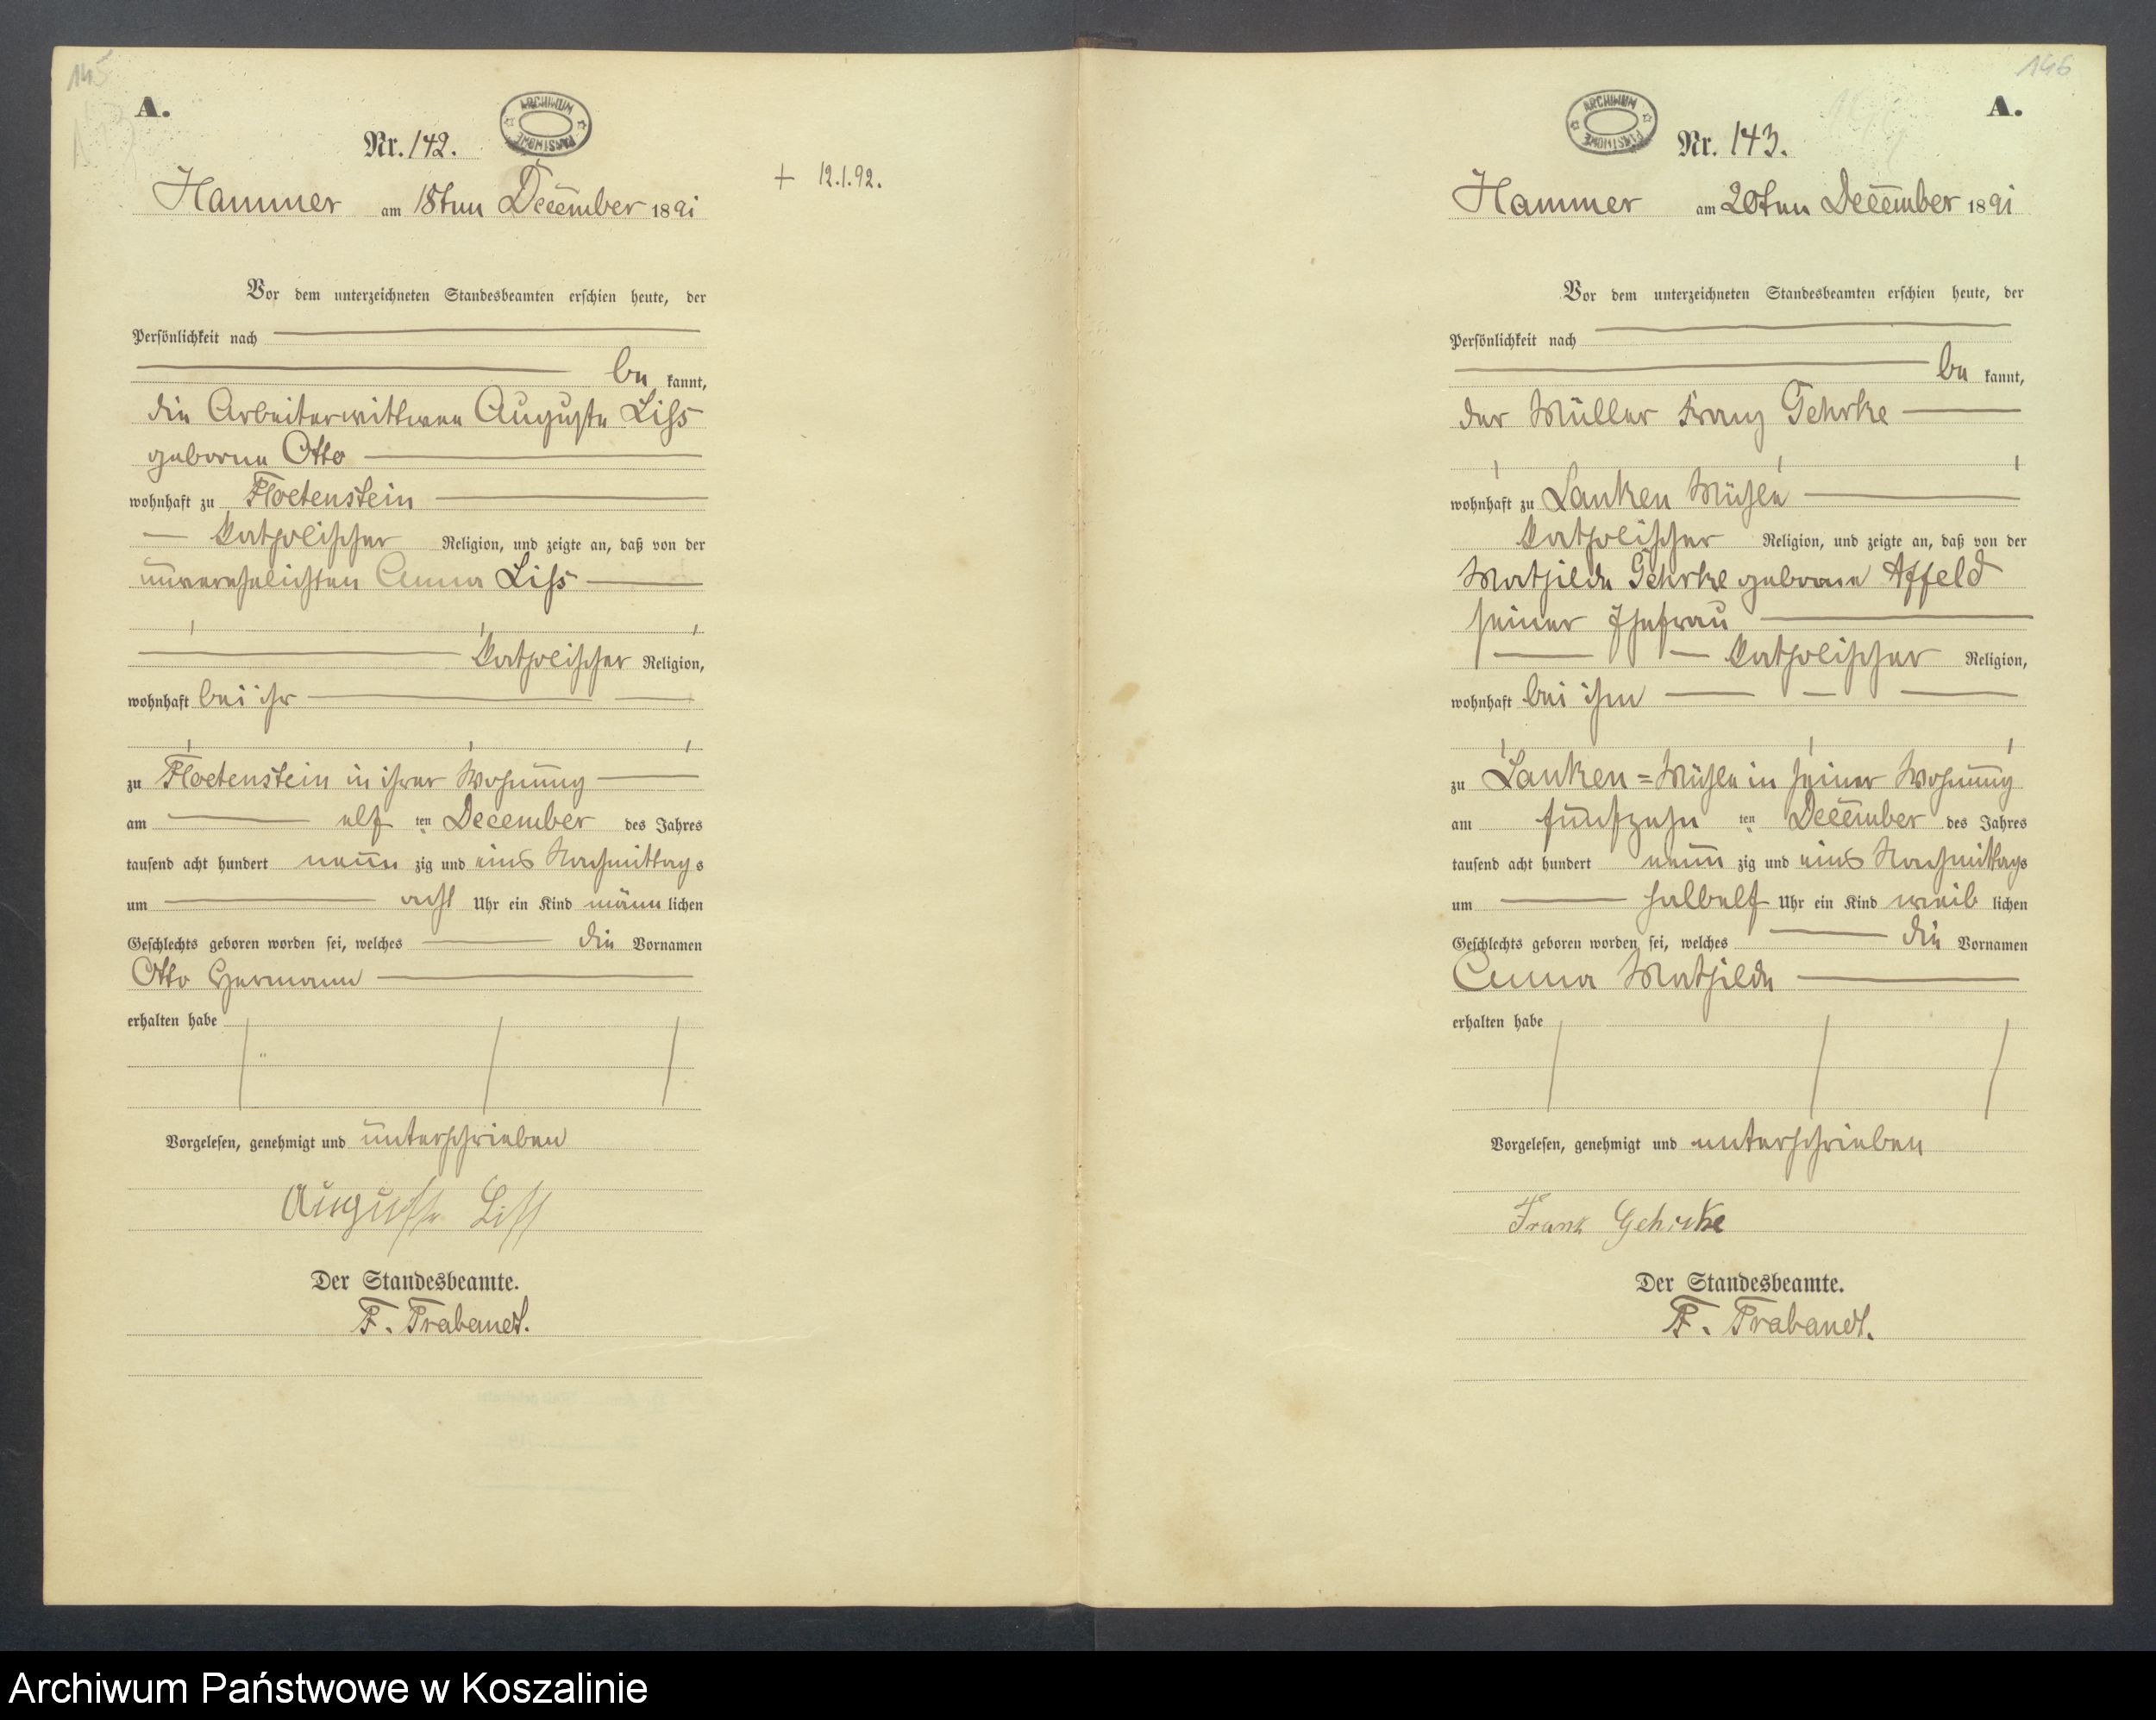 145
A.
ARCHIWUM PAŃSTWOWE
Nr. 142.
+ 12.1.92.
Hammer am 18ten December 1891
Vor dem unterzeichneten Standesbeamten erschien heute, der
Persönlichkeit nach
be kannt,
die Arbeiterwittwee Auguste Liss
geborne Otto
wohnhaft zu Floetenstein
katholischer Religion, und zeigte an, daß von der
unverehelichten Anna Liss
katholischer Religion,
wohnhaft bei ihr
zu Floetenstein in ihrer Wohnung
am elf ten December des Jahres
tausend acht hundert neun zig und eins Nachmittags
um acht Uhr ein Kind männ lichen
Geschlechts geboren worden sei, welches die Vornamen
Otto Hermann
erhalten habe
Vorgelesen, genehmigt und unterschrieben
Auguste Liss
Der Standesbeamte.
F. Trabandt.
146
A.
ARCHIWUM PAŃSTWOWE
Nr. 143.
Hammer am 20ten December 1891
Vor dem unterzeichneten Standesbeamten erschien heute, der
Persönlichkeit nach
be kannt,
der Müller Franz Gehrke
wohnhaft zu Lanken Mühle
katholischer Religion, und zeigte an, daß von der
Mathilde Gehrke geborne Affeld
seiner Ehefrau
katholischer Religion,
wohnhaft bei ihm
zu Lanken=Mühle in seiner Wohnung
am fünfzehn ten December des Jahres
tausend acht hundert neun zig und eins Nachmittags
um halbelf Uhr ein Kind weib lichen
Geschlechts geboren worden sei, welches die Vornamen
Anna Mathilde
erhalten habe
Vorgelesen, genehmigt und unterschrieben
Franz Gehrke
Der Standesbeamte.
F. Trabandt.
Archiwum Państwowe w Koszalinie